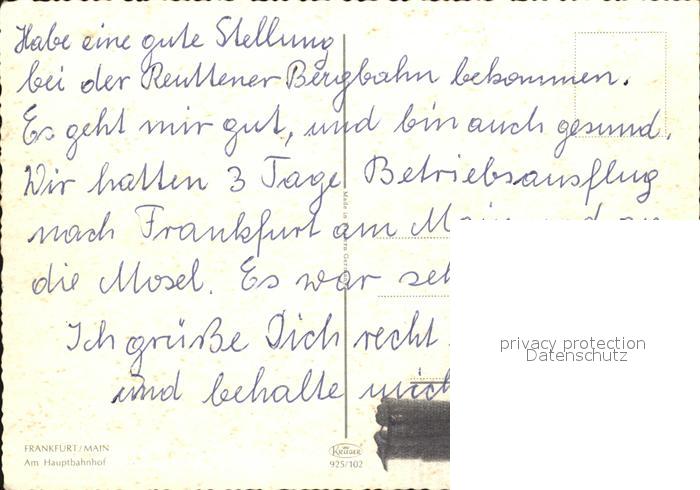 Habe eine gute Stellung
bei der Reuttener Bergbahn bekommen.
Es geht mir gut, und bin auch gesund.
Wir hatten 3 Tage Betriebsausflug
nach Frankfurt am
die Mosel. Es war
Ich grüße Dich recht
und behalte mich
privacy protection
Datenschutz
FRANKFURT/MAIN
Am Hauptbahnhof
KRÜGER
925/102